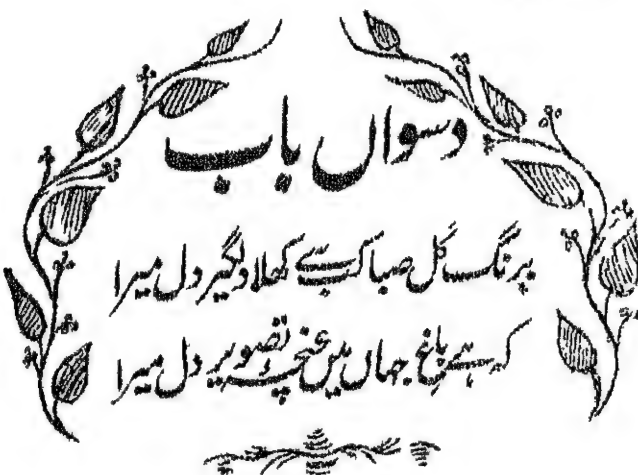 دسواں باب
برنگ گل صبا کب سے کھلا دلگیر دل میرا
کہ ہے باغ جہاں میں غنچہ تصویر دل میرا